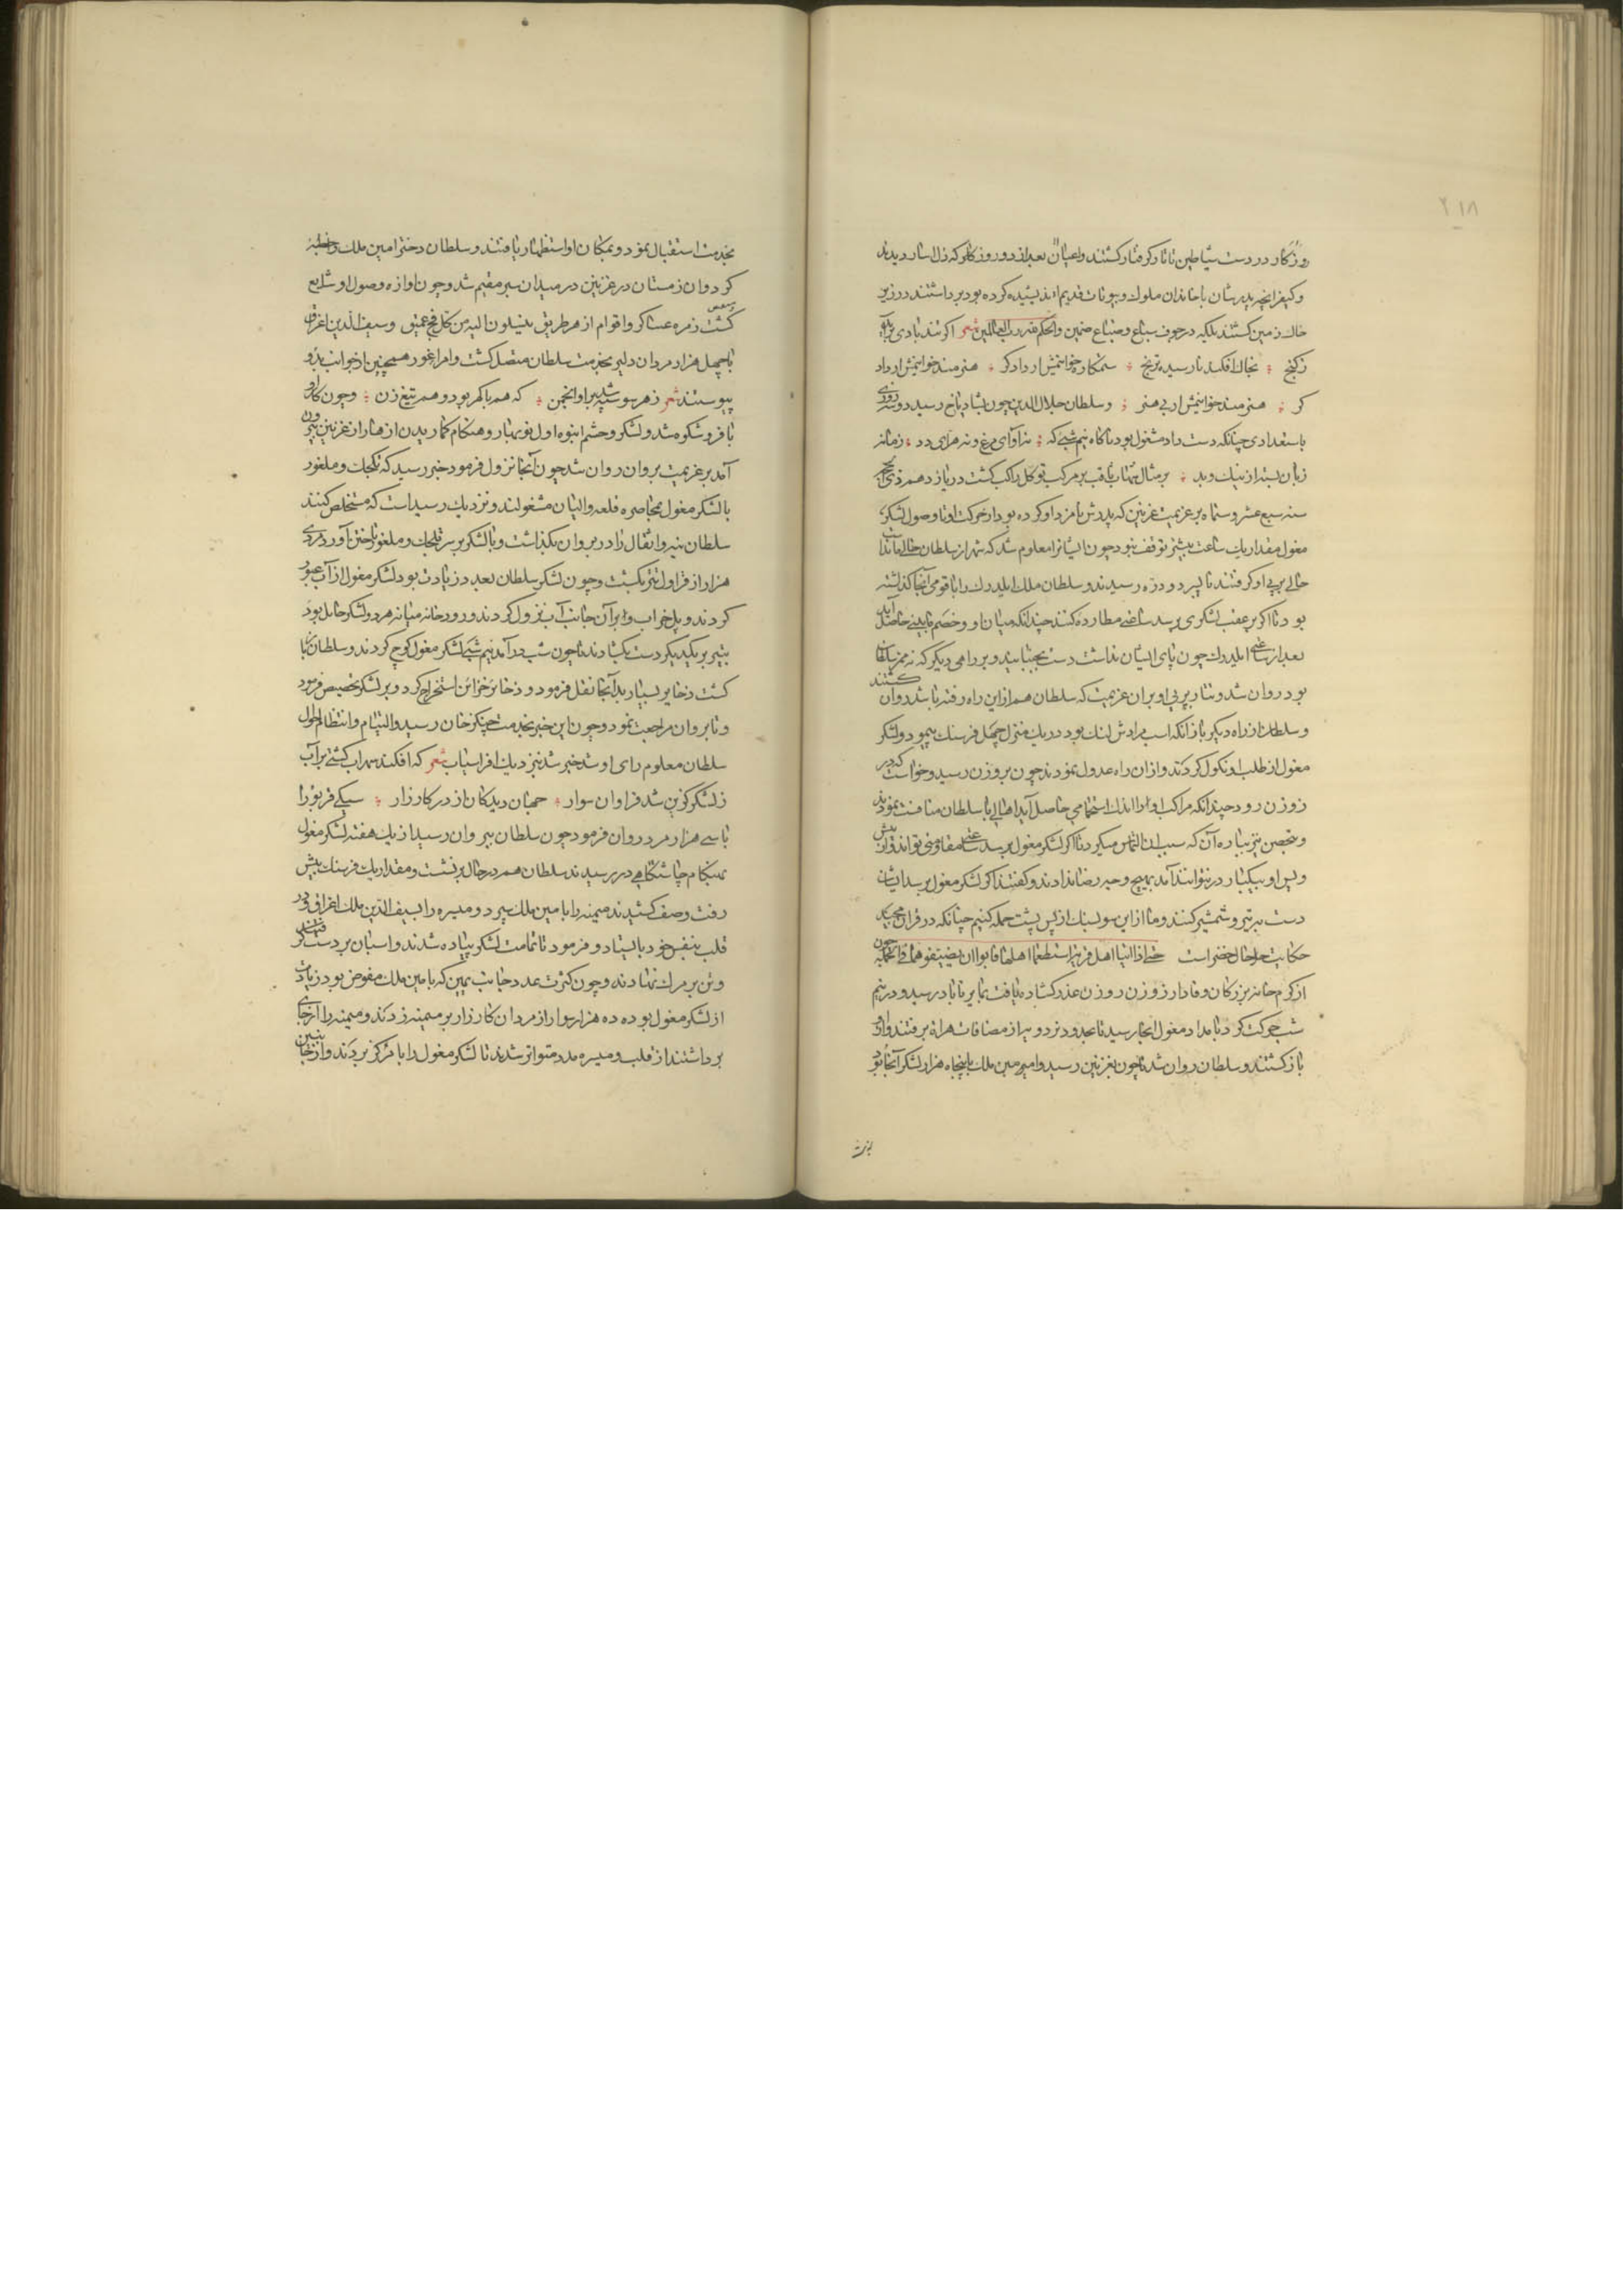 ۲۱۸
روزگار در دست شیاطین تاتار گرفتار گشتند و اعیان بعد از دو روز کار که زلا سار دیدند
و کیفر انچه پدرشان با خاندان ملوک و بیوتات قدیم اندیشیده کرده بود برداشتند در زیر
خاک زمین گشتند بلکه در جوف سباع و ضباع ضمین والحکم لله رب العالمین شعر اگر تند بادی براید
ز کنج نخاک افکند نارسیده ترنج ستمکاره خوانیمش ار دادگر هنرمند خوانیمش ار داد
گر هنرمند خوانیمش ار بی هنر و سلطان جلال الدین چون بشادیاخ رسید دو سه روزی
باستعدادی چنانکه دست داد مشغول بود تا کاه نیم شبی که نه آوای مرغ و نه هرای دد زمانه
زبان بسته از نیک و بد بر مثال شهاب ثاقب بر مرکب توکل راکب گشت در یازدهم ذی الحجه
سنه سبع عشر و ستمایه بر عزیمت غزنین که پدرش نامزد او کرده بود از حرکت او تا وصول لشکر
مغول مقدار یک ساعت بیشتر توقف نبود چون ایشان را معلوم شد که شهر از سلطان خالی ماندست
حالی بر پی او گرفتند تا بسر دو دره رسیدند و سلطان ملک ایلدرک را با قومی آنجا گذاشته
بود تا اگر بر عقب لشکری برسد ساعتی مطارده کنند چندانکه میان او و خصم ما بینی حاصل آید
بعد از ساعتی ایلدرک چون پای ایشان نداشت دست بجنبانید و بر راهی دیگر که نه ممر سلطان
بود روان شد و تتار بر پی او بران عزیمت که سلطان هم از این راه رفته باشد روان گشتند
و سلطان از راه دیگر باز انکه اسب مرادش لنگ بود در یک منزل چهل فرسنک بپیمود و لشکر
مغول از طلب او نکول کردند و از ان راه عدول نمودند چون بروزن رسید و خواست که در
زوزن رود چندانکه مراکب او را اندک استجمامی حاصل آید اهالی با سلطان مناقشت نمودند
و بتحصن نیز بباره آن که سبب ان التماس میکرد تا اگر لشکر مغول برسد ساعتی مقاومتی تواند و از پیش
و پس او بیکبار در نتوانند آمد بهیچ وجه رضا ندادند و گفتند اگر لشکر مغول برسد ایشان
دست بتیر و شمشیر کنند و ما از این سو بسنگ از پس پشت حمله کنیم چنانکه در قران مجید
حکایت حال خضر است حتی اذا اتیا اهل قریة استطعما اهلها فابوا ان یضیفوهما فی الجمله چون
از کرم خانه بزرگان وفادار زوزن روزن عذر گشاده یافت بمابژناباد رسید و در نیم
شب حرکت کرد بامداد مغول آنجا رسید تا بحدود نردویه از مضافات هراة برفتند و ازو
باز گشتند و سلطان روان شد تا چون بغزنین رسید و امیر مین ملک با پنجاه هزار لشکر آنجا بود
بخدمت
بخدمت استقبال نمود و بمکان او استظهار یافتند و سلطان دختر امین ملک را خطبه
کرد و ان زمستان در غزنین در میدان سبز مقیم شد و چون اوازه وصول او شایع
گشت زمره عساکر و اقوام از هر طریق ینسلون الیه من کل فج عمیق و سیف الدین اغراق
با چهل هزار مردان دلیر بخدمت سلطان متصل گشت و امرا غور همچنین از جوانب بدو
پیوستند شعر ز هر سو سپه شد برو انجمن که هم باگهر بود و هم تیغ زن و چون کار او
با فر و شکوه شد و لشکر و حشم انبوه اول نوبهار و هنگام گماریدن ازهار از غزنین بیرون
آمد بر عزیمت پروان روان شد چون آنجا نزول فرمود خبر رسید که تکجک و ملغور
با لشکر مغول محاصره قلعه والیان مشغولند و نزدیک رسید است که مستخلص کنند
سلطان بنه و اثقال را در پروان بگذاشت و با لشکر بر سر تکجک و ملغور تاختن آورد مردی
هزار از قراول تتر بکشت و چون لشکر سلطان بعدد زیادت بود لشکر مغول از آب عبور
کردند و پل خراب و بر آن جانب آب نزول کردند و رودخانه میانه هر دو لشکر حایل بود
بتیر بر یکدیگر دست بگشادند تا چون شب در آمد نیم شبی لشکر مغول کوچ کردند و سلطان باز
گشت ذخایر بسیار بدآنجا نقل فرمود و ذخایر خزاین استخراج کرد و بر لشکر تخصیص فرمود
و با پروان مراجعت نمود و چون این خبر بخدمت چنگز خان رسید و التیام و انتظام احوال
سلطان معلوم رای او شد خبر شد بنزدیک افراسیاب شعر که افکند سهراب کشتی بر آب
ز لشکر گزین شد فراوان سوار جهان دیدگان از در کارزار سیکی قوتوقو را
با سی هزار مرد روان فرمود چون سلطان بپروان رسید از یک هفته لشکر مغول
بهنگام چاشتگاهی در رسیدند سلطان هم در حال برنشست و مقدار یک فرسنگ پیش
رفت و صف کشیدند میمنه را با مین ملک سپرد و میسره را بسیف الدین ملک اغراق و در
قلب بنفس خود بایستاد و فرمود تا تمامت لشکر پیاده شدند و اسبان بر دست گرفتند
و تن بر مرگ نهادند و چون کثرت عدد جانب یمین که بامین ملک مفوض بود زیادت
از لشکر مغول بود ده هزار سوار از مردان کارزار بر میمنه زدند و میمنه را از جای
برداشتند از قلب و میسره مدد متواتر شدند تا لشکر مغول را با مرکز بردند و از جانبین